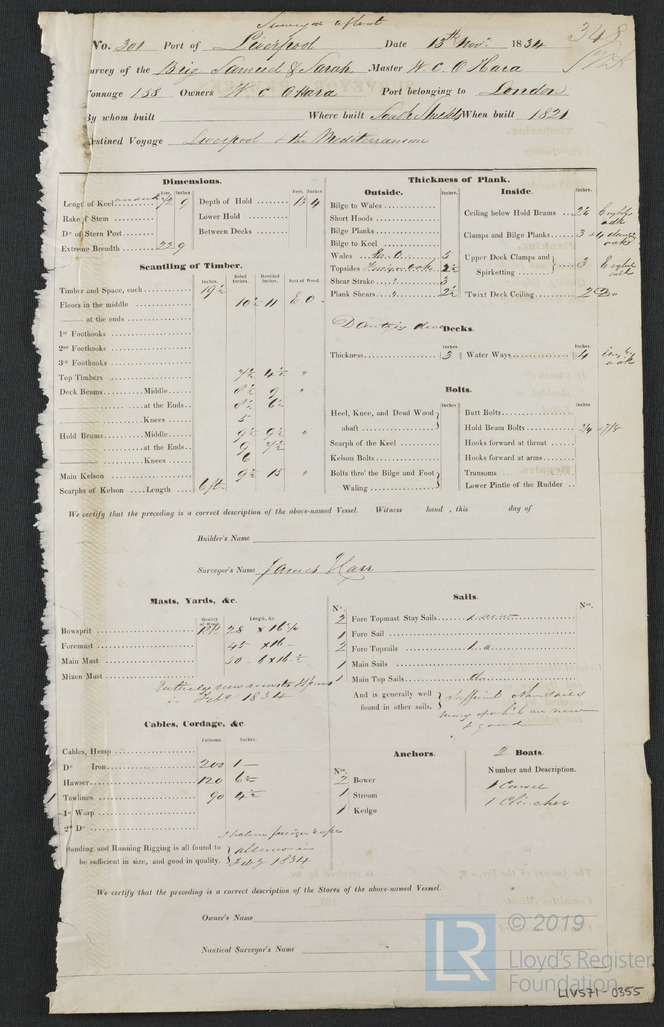 Surveyed afloat
348
No. 301 Port of Liverpool Date 13th Novr. 1834
urvey of the Brig Samuel & Sarah Master W. C. O'Hara
onnage 158 Owners W. C O'Hara Port belonging to London
By whom built Where built South Shields When built 1821
estined Voyage Liverpool & the Mediterranean
Dimensions.
Feet. Inches.
Length of Keel 72 9
Rake of Stem
Do. of Stern Post
Extreme Breadth 22.9
Feet. Inches
Depth of Hold 13 4
Lower Hold
Between Decks
Thickness of Plank.
Outside.
Inches
Bilge to Wales
Short Hoods
Bilge Planks
Bilge to Keel
Wales 5
Topsides Foreign oak 2½
Shear Strake " 3
Plank Shears " 2½
Inside.
Inches.
Ceiling below Hold Beams 2½ English oak
Clamps and Bilge Planks 3
Upper Deck Clamps and Spirketting 3 English oak
Twixt Deck Ceiling 2 Do
Scantling of Timber.
Inches. Sided Inches. Moulded Inches. Sort of Wood.
Timber and Space, each 19½
Floors in the middle 10½ 11 E O
at the ends
1st Foothooks
2nd Foothooks
3rd Foothooks
Top Timbers 7½ 4½ "
Deck Beams Middle 8½ 9 "
at the Ends 8½ 6½
Knees 5
Hold Beams Middle 9½ 9½ "
at the Ends 9 7½
Knees 6
Main Kelson 9½ 15 "
Scarphs of Kelson Length 6 ft
Decks.
Inches. Inches.
Thickness 3 Water Ways 4 English oak
Bolts.
Inches Inches
Heel, Knee, and Dead Wood shaft
Scarph of the Keel
Kelson Bolts
Bolts thro' the Bilge and Foot Waling
Butt Bolts
Hold Beam Bolts 3/4 & 7/8
Hooks forward at throat
Hooks forward at arms
Transoms
Lower Pintle of the Rudder
We certify that the preceding is a correct description of the above-named Vessel. Witness hand, this day of
Builder's Name
Surveyor's Name James Harr
Masts, Yards, &c.
Quality of Wood Length, &c
Bowsprit 28 × 16½
Foremast 45 × 16
Main Mast 50 6 × 16½
Mizen Mast
Entirely new masts & yards
in Feby 1834
Sails.
No. No.
2 Fore Topmast Stay Sails
1 Fore Sail
2 Fore Topsails
1 Main Sails
1 Main Top Sails
And is generally well found in other sails.
Sufficient other sails
many of which are new
& good
Cables, Cordage, &c
Fathoms. Inches.
Cables, Hemp
Do Iron 200 1
Hawser 120 6½
Towlines 90 4½
1st Warp
2nd Do
tanding and Running Rigging is all found to be sufficient in size, and good in quality.
all new in
Feby 1834
Anchors.
Nos.
2 Bower
1 Stream
1 Kedge
2 Boats.
Number and Description.
1 Carvel
1 Clincher
We certify that the preceding is a correct description of the Stores of the above-named Vessel.
Owner's Name
Nautical Surveyor's Name
LR
© 2019
Lloyd's Register
Foundation
LIV571-0355